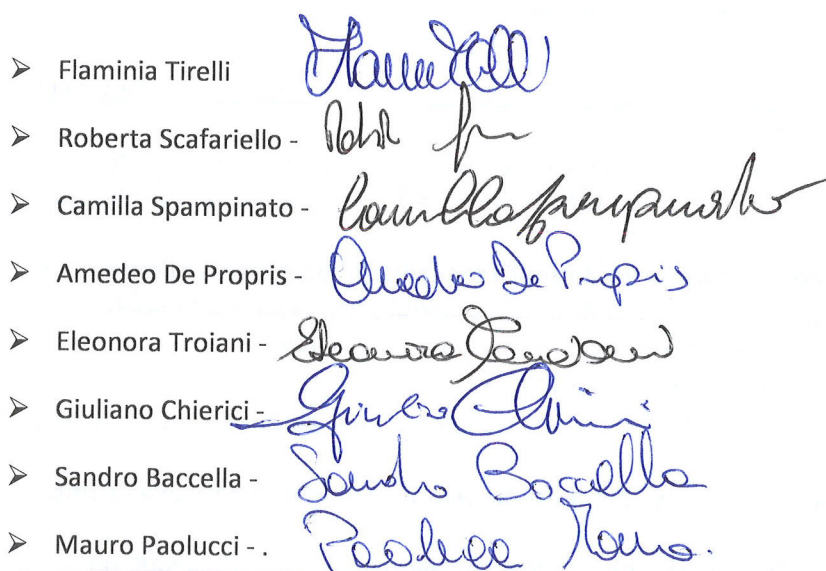 ➤ Flaminia Tirelli
➤ Roberta Scafariello -
➤ Camilla Spampinato - Camilla Spampinato
➤ Amedeo De Propris - Amedeo De Propris
➤ Eleonora Troiani - Eleonora
➤ Giuliano Chierici -
➤ Sandro Baccella - Sandro Baccella
➤ Mauro Paolucci - . Paolucci Mauro.